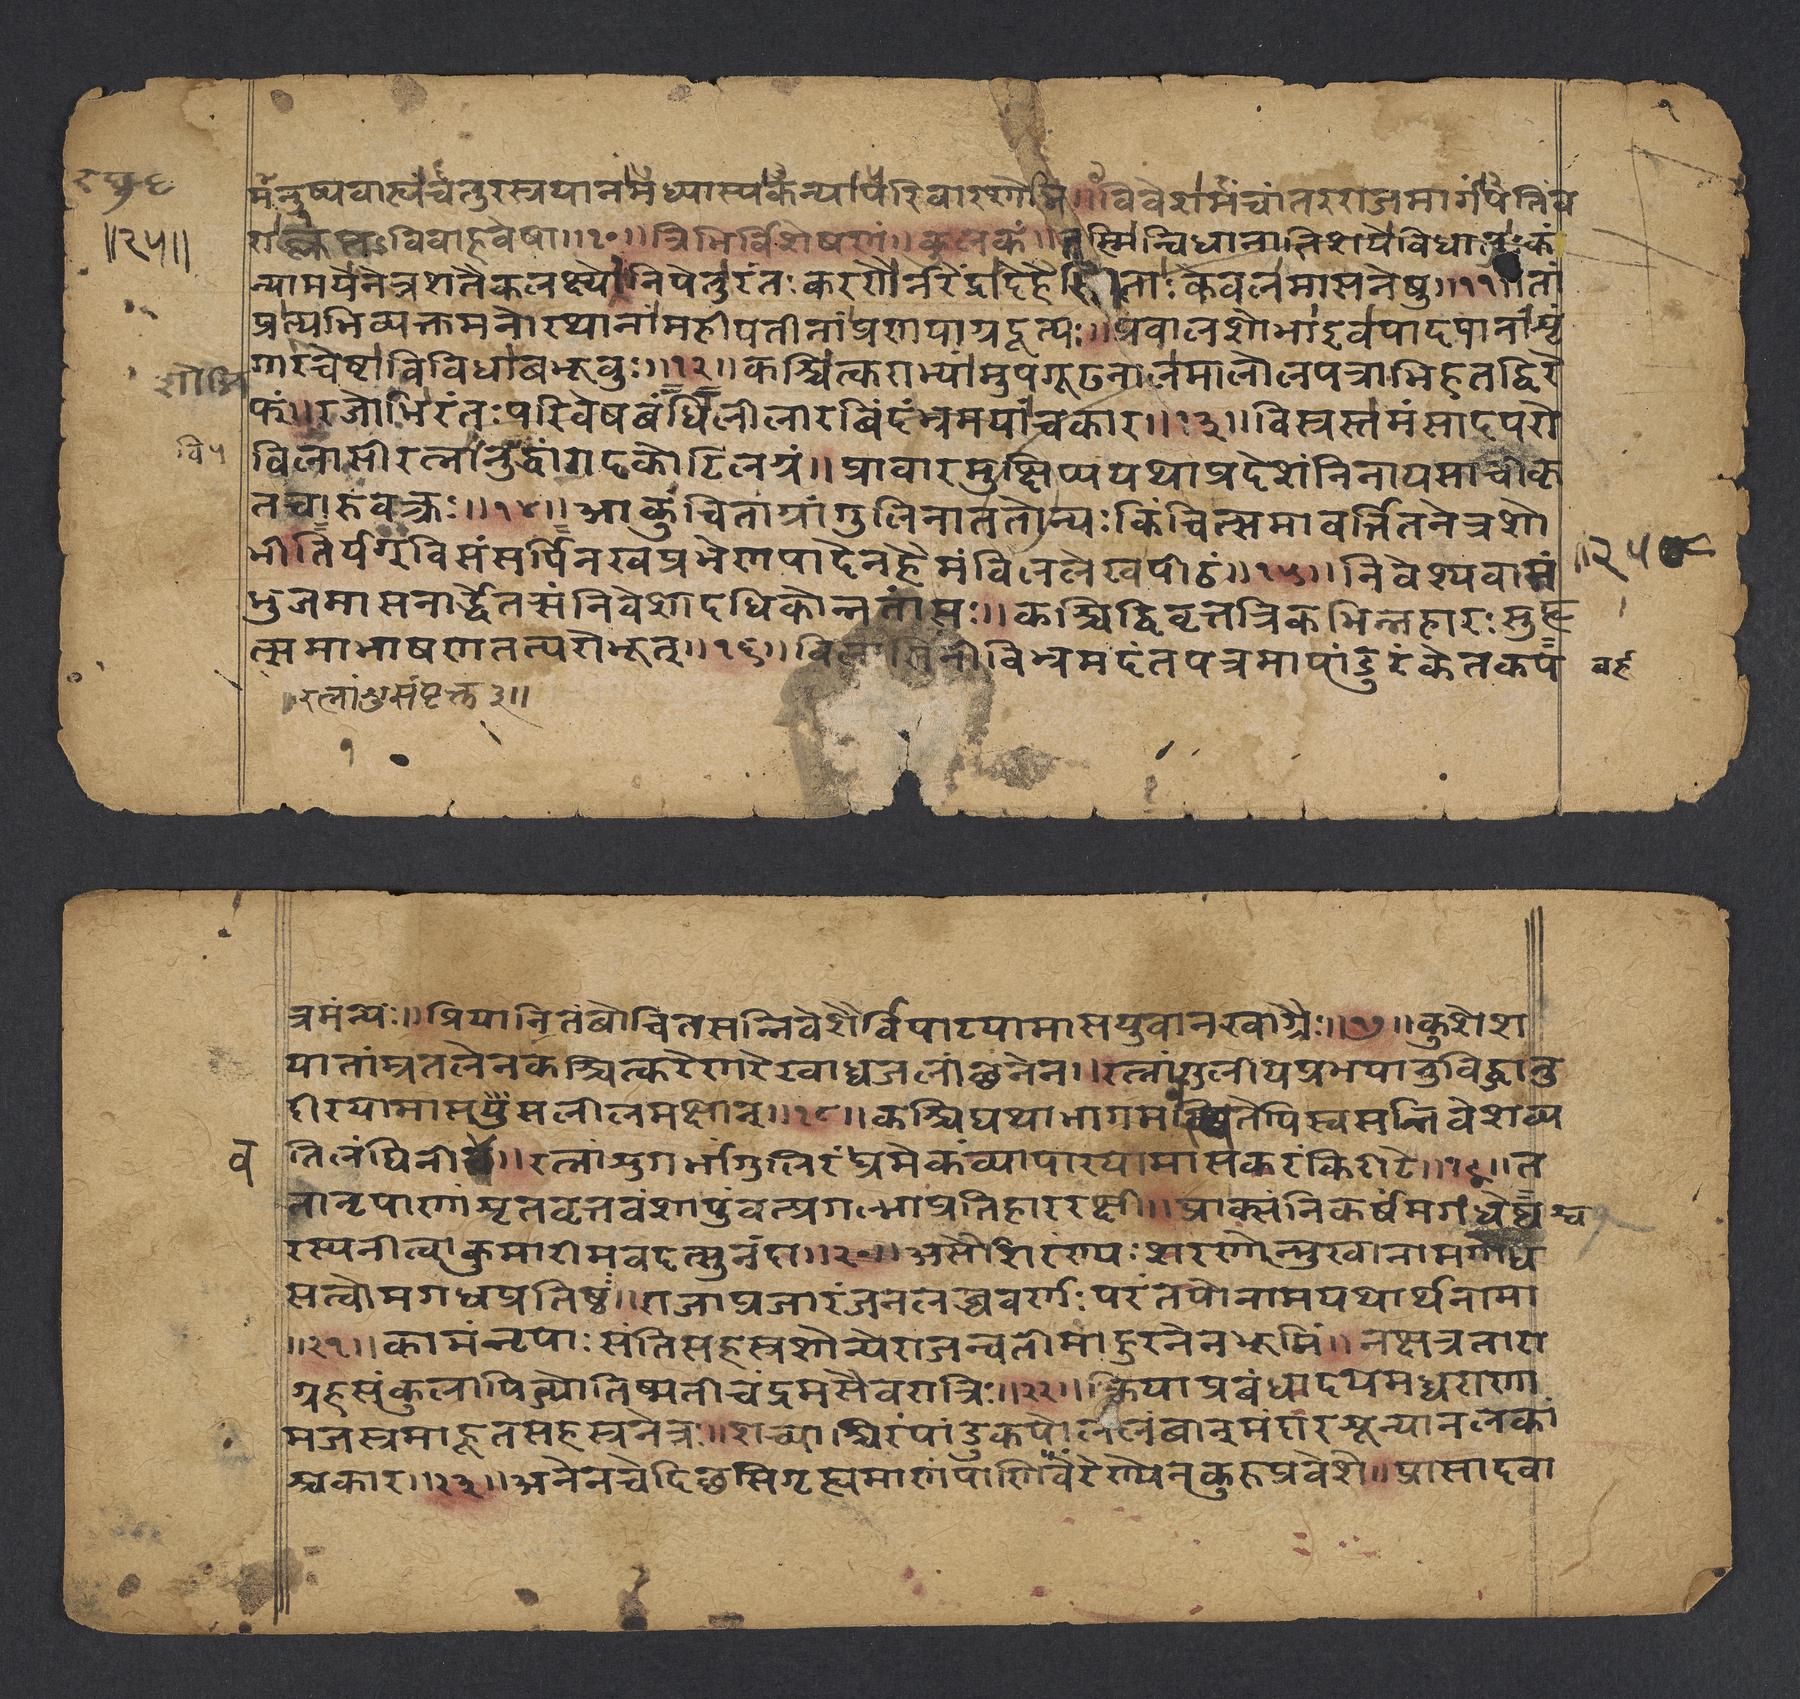 र घु ६
॥२५॥
मनुष्यवाह्यंचतुरस्त्रयानमध्यास्यकन्यापरिवारशोभि॥विवेशमंचांतरराजमार्गंपतिंव
राक्लृप्तविवाहवेषा॥१०॥त्रिभिर्विशेषणं॥कुलकं॥तस्मिन्विधानातिशयेविधातुःकं
न्यामयेनेत्रशतैकलक्ष्ये॥निपेतुरंतःकरणैर्नरेंद्रादेहैःस्थिताःकेवलमासनेषु॥११॥तां
प्रत्यभिव्यक्तमनोरथानांमहीपतीनांप्रणयाग्रदूत्यः॥प्रवालशोभाइवपादपानांशृं
गारचेष्टाविविधाबभूवुः॥१२॥कश्चित्कराभ्यामुपगूढनालमालोलपत्राभिहतद्विरे
फं॥रजोभिरंतःपरिवेषबंधिलीलारविंदंभ्रमयांचकार॥१३॥विस्त्रस्तमंसादपरो
विलासीरत्नानुविद्धांगदकोटिलग्नं॥प्रावारमुत्क्षिप्ययथाप्रदेशंनिनायसाचीकृ
तचारुवक्त्रः॥१४॥आकुंचिताग्रांगुलिनाततोन्यःकिंचित्समावर्ज्जितनेत्रशो
भी
तिर्यग्विसंसर्पिनखप्रभेणपादेनहैमंविलिलेखपीठं॥१५॥निवेश्यवामं
भुजमासनार्द्धेतत्संनिवेशादधिकोन्नतांसः॥कश्चिद्विवृत्तत्रिकभिन्नहारःसुहृ
त्समाभाषणतत्परोभूत्॥१६॥विलासिनीविभ्रमदंतपत्रमापांडुरंकेतकप
बर्ह
॥रत्नांशुसंपृक्त३॥
त्रमन्यः॥प्रियानितंबोचितसन्निवेशैर्विपाटयामासयुवानखाग्रैः॥१७॥कुशेश
याताम्रतलेनकश्चित्करेणरेखाध्वजलांछनेन॥रत्नांगुलीयप्रभयानुविद्धानु
दीरयामाससलीलमक्षान्॥१८॥कश्चिद्यथाभागमवस्थितेपिस्वसन्निवेशव्य
तिलंघिनीव॥रत्नांशुगर्भांगुलिरंध्रमेकंव्यापारयामासकरंकिरीटे॥१९॥त
व
तोनृपाणांश्रुतवृत्तवंशापुंवत्प्रगल्भाप्रतिहाररक्षी॥प्राक्संनिकर्षंमगधेश्व
रस्यनीत्वाकुमारीमवदत्सुनंदा॥२०॥असौशरण्यःशरणोन्मुखानामगाध
सत्वोमगधप्रतिष्ठः॥राजाप्रजारंजनलब्धवर्णःपरंतपोनामयथार्थनामा
॥२१॥कामंनृपाःसंतिसहस्त्रशोन्येराजन्वतीमाहुरनेनभूमिं॥नक्षत्रतारा
ग्रहसंकुलापिज्योतिष्मतीचंद्रमसैवरात्रिः॥२२॥क्रियाप्रबंधादयमध्वराणा
मजस्त्रमाहूतसहस्त्रनेत्रः॥शच्याश्चिरंपांडुकपोललंबान्मंदारशून्यानलकां
श्चकार॥२३॥अनेनचेदिछसिगृह्यमाणंपाणिंवरेण्येनकुरुप्रवेशे॥प्रासादवा